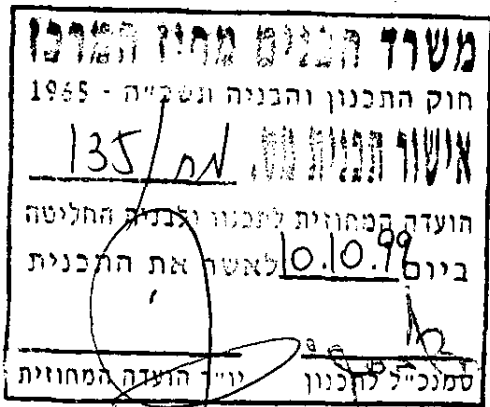 משרד הפנים מחוז המרכז
חוק התכנון והבניה תשכ"ה - 1965
אישור תכנית מס. מח/135
הועדה המחוזית לתכנון ולבניה החליטה
ביום 10.10.99 לאשר את התכנית
סמנכ"ל לתכנון יו"ר הועדה המחוזית